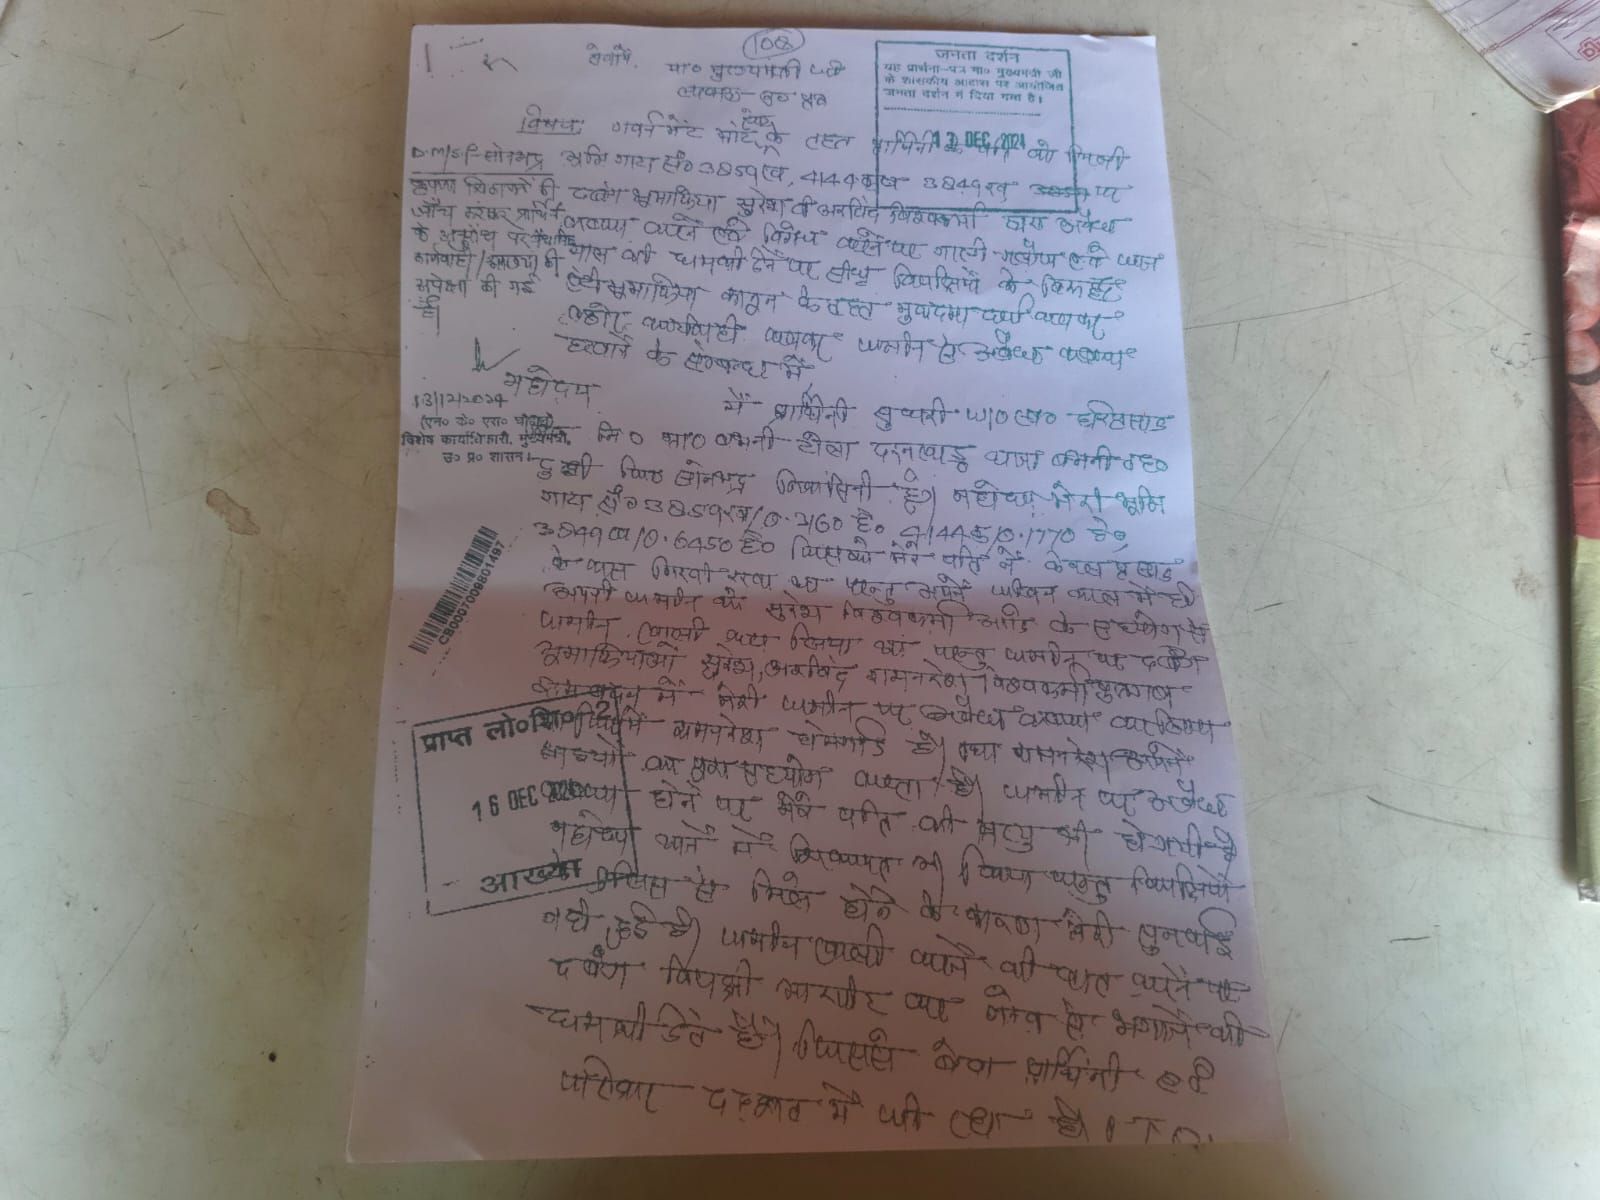 108
सेवा में,
मा० मुख्यमंत्री जी
लखनऊ - उ० प्र०
जनता दर्शन
यह प्रार्थना-पत्र मा० मुख्यमंत्री जी
के शासकीय आवास पर आयोजित
जनता दर्शन में दिया गया है।
13 DEC 2024
विषय: गवर्नमेंट के तहत प्रार्थिनी के की निजी
भूमि गाटा सं० 3859ख, 4144 3849ख पर
दबंग भूमाफिया सुरेश व अरविंद विश्वकर्मा द्वारा अवैध
कब्जा करने एवं विरोध करने पर गाली गलौज एवं जान
माल की धमकी देने पर विपक्षियों के विरुद्ध
भूमाफिया कानून के तहत मुकदमा दर्ज कराकर
कठोर कार्यवाही कराकर जमीन से अवैध कब्जा
हटवाने के सम्बन्ध में,
D.M/S.P- सोनभद्र
कृपया शिकायत की
जाँच कराकर प्रार्थी
के अनुरोध पर
कार्यवाही / की
अपेक्षा की गई
है।
13/12/2024
(एन० के० एस० चौहान)
विशेष कार्याधिकारी, मुख्यमंत्री,
उ० प्र० शासन।
महोदय
मैं प्रार्थिनी W/O स्व०
नि० ग्रा० टोला थाना तह०
दुद्धी जिला सोनभद्र निवासिनी है। महोदय मेरी भूमि
गाटा सं० 3859ख/0.2160 हे० 4144क/0.1770 हे०
3849ख/0.6450 हे० जिसको मेरे पति ने
के पास गिरवी रखा था परन्तु अपने जीवन काल में ही
अपनी जमीन को सुरेश विश्वकर्मा आदि के सहयोग से
जमीन खाली करा लिया था परन्तु जमीन पर दबंग
भूमाफियाओं सुरेश, अरविंद रामनरेश विश्वकर्मा पुत्रगण
ने मेरी जमीन पर अवैध कब्जा कर लिया
जिसमें रामनरेश होमगार्ड है। तथा रामनरेश अपने
भाइयों का पूरा सहयोग करता है। जमीन पर अवैध
कब्जा होने पर मेरे पति की मृत्यु भी हो गयी है
महोदय थाने में शिकायत भी किया परन्तु विपक्षियों
पुलिस से मिले होने के कारण मेरी सुनवाई
नहीं हुई है। जमीन खाली करने की बात करने पर
दबंग विपक्षी मारपीट कर गाँव से भगाने की
धमकी देते है। जिससे बेवा प्रार्थिनी एवं
परिवार दहशत में जी रहा है। P.T.O.
CB0007009801497
प्राप्त लो०शि० 2
16 DEC 2024
आख्या